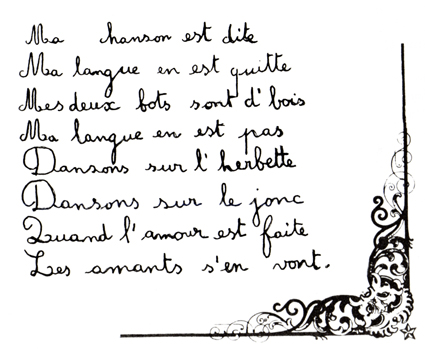 Ma hanson est dite
Ma langue en est quitte
Mes deux bots sont d'bois
Ma langue en est pas
Dansons sur l'herbette
Dansons sur le jonc
Quand l'amour est faite
Les amants s'en vont.